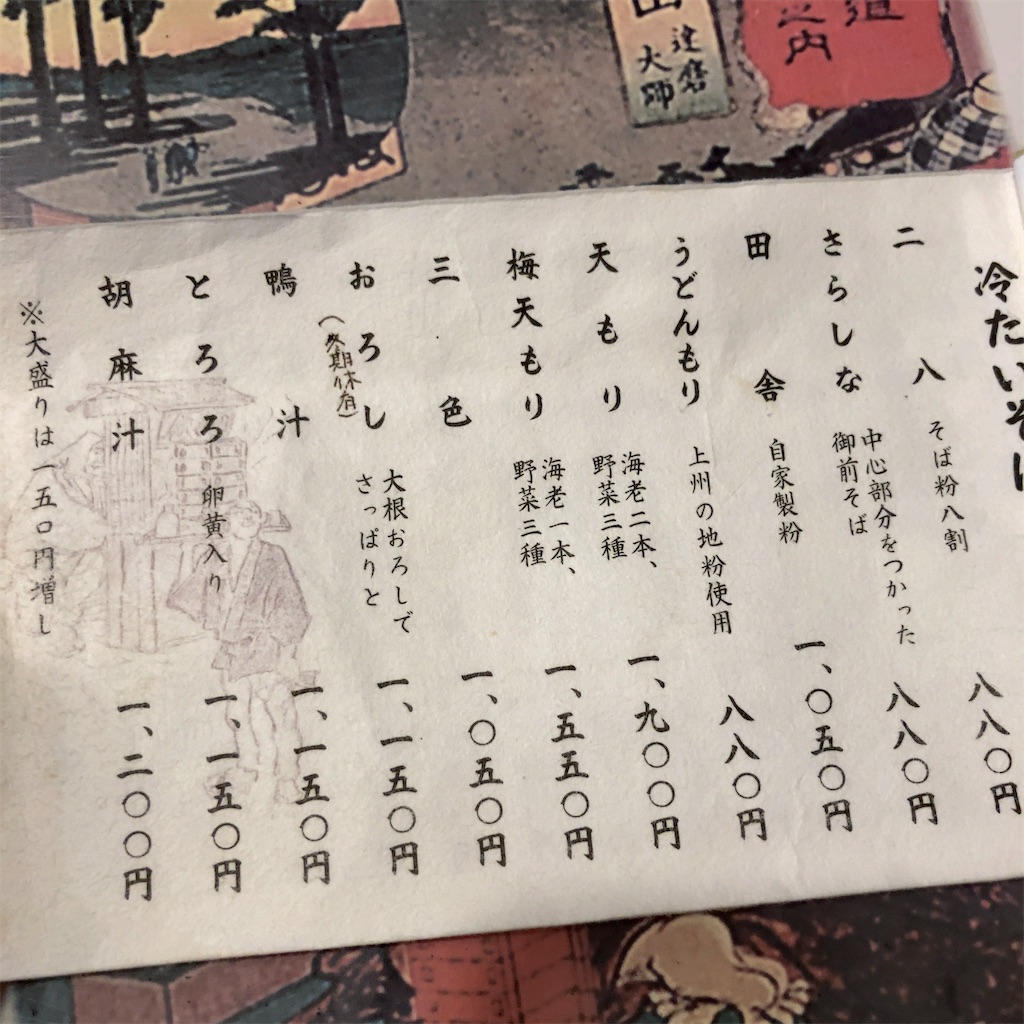 道
之内
達磨
大師
冷たいそば
二八 そば粉八割 八八〇円
さらしな 中心部分をつかった
御前そば 八八〇円
田舎 自家製粉 一、〇五〇円
うどんもり 上州の地粉使用 八八〇円
天もり 海老二本、
野菜三種 一、九〇〇円
梅天もり 海老一本、
野菜三種 一、五五〇円
三色 一、〇五〇円
おろし 大根おろしで
さっぱりと 一、一五〇円
(冬期休有)
鴨汁 一、一五〇円
とろろ 卵黄入り 一、一五〇円
胡麻汁 一、二〇〇円
※大盛りは一五〇円増し